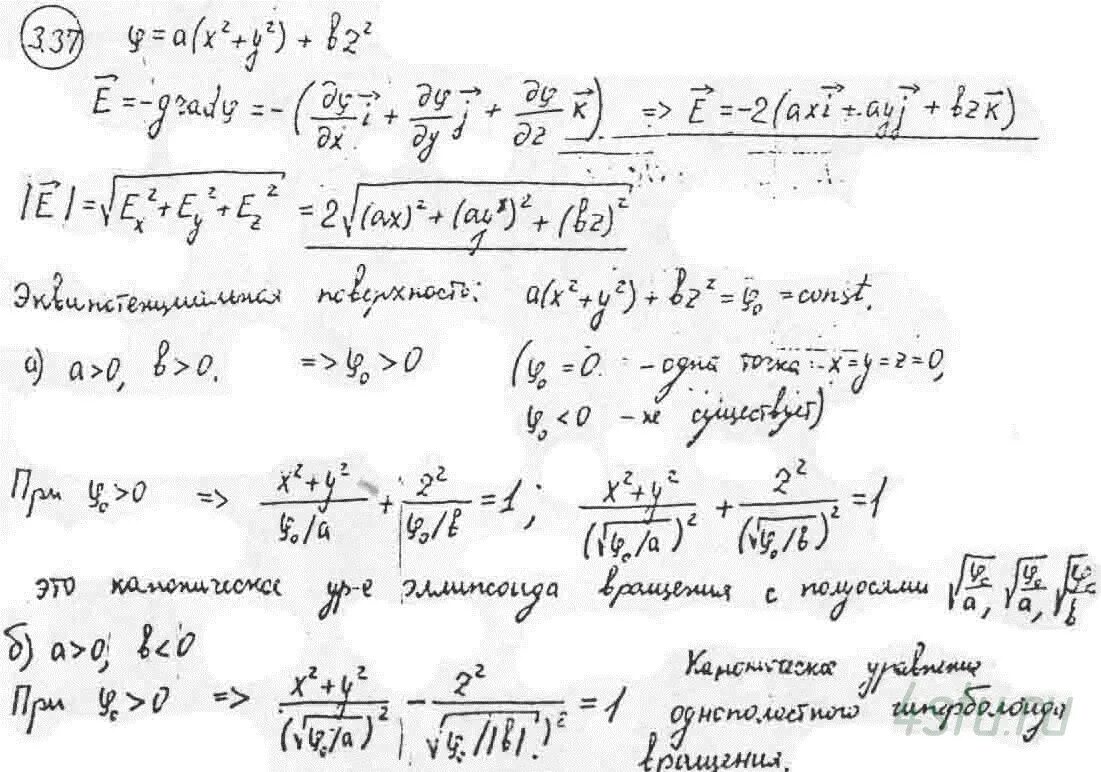 3.37 φ = a(x² + y²) + bz²
E⃗ = -grad φ = -(∂φ/∂x i⃗ + ∂φ/∂y j⃗ + ∂φ/∂z k⃗) => E⃗ = -2(axi⃗ + ayj⃗ + bzk⃗)
|E⃗| = √(Eₓ² + E_y² + E_z²) = 2√((ax)² + (ay)² + (bz)²)
Эквипотенциальная поверхность: a(x² + y²) + bz² = φ₀ = const.
а) a>0, b>0. => φ₀ > 0 (φ₀ = 0 - одна точка - x = y = z = 0,
φ₀ < 0 - не существует)
При φ₀ > 0 => (x² + y²)/(φ₀/a) + z²/(φ₀/b) = 1; (x² + y²)/(√(φ₀/a))² + z²/(√(φ₀/b))² = 1
это каноническое ур-е эллипсоида вращения с полуосями √(φ₀/a), √(φ₀/a), √(φ₀/b)
б) a>0, b<0
При φ₀ > 0 => (x² + y²)/(√(φ₀/a))² - z²/(√(φ₀/|b|))² = 1 Каноническое уравнение
однополостного гиперболоида
вращения.
4stu.ru